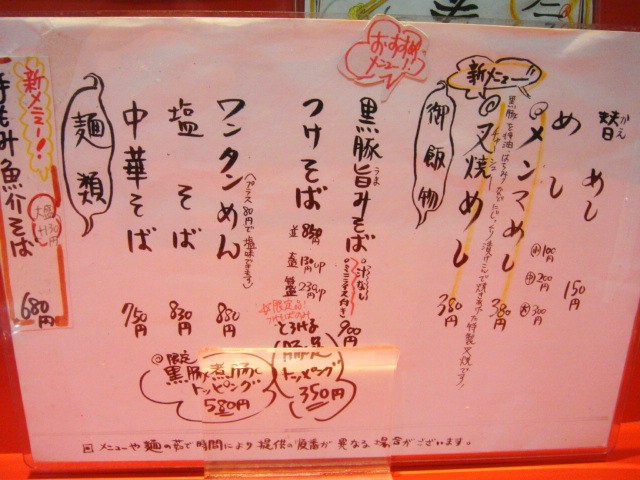 替めし 150円
かえ
めし
小 100円
中 200円
大 300円
メンマめし 380円
新メニュー!!
叉焼めし 380円
チャーシュー
御飯物
おすすめ
メニュー!
黒豚旨みそば 900円
うま
つけそば
並 850円
大盛
+130円
ワンタンめん 880円
(プラス80円で塩味できます)
塩そば 830円
中華そば 750円
麺類
新メニュー!
手もみ魚介そば
680円
豚足
トッピング
350円
限定
黒豚煮豚
トッピング
580円
メニューや麺の茹で時間により提供の順番が異なる場合がございます。